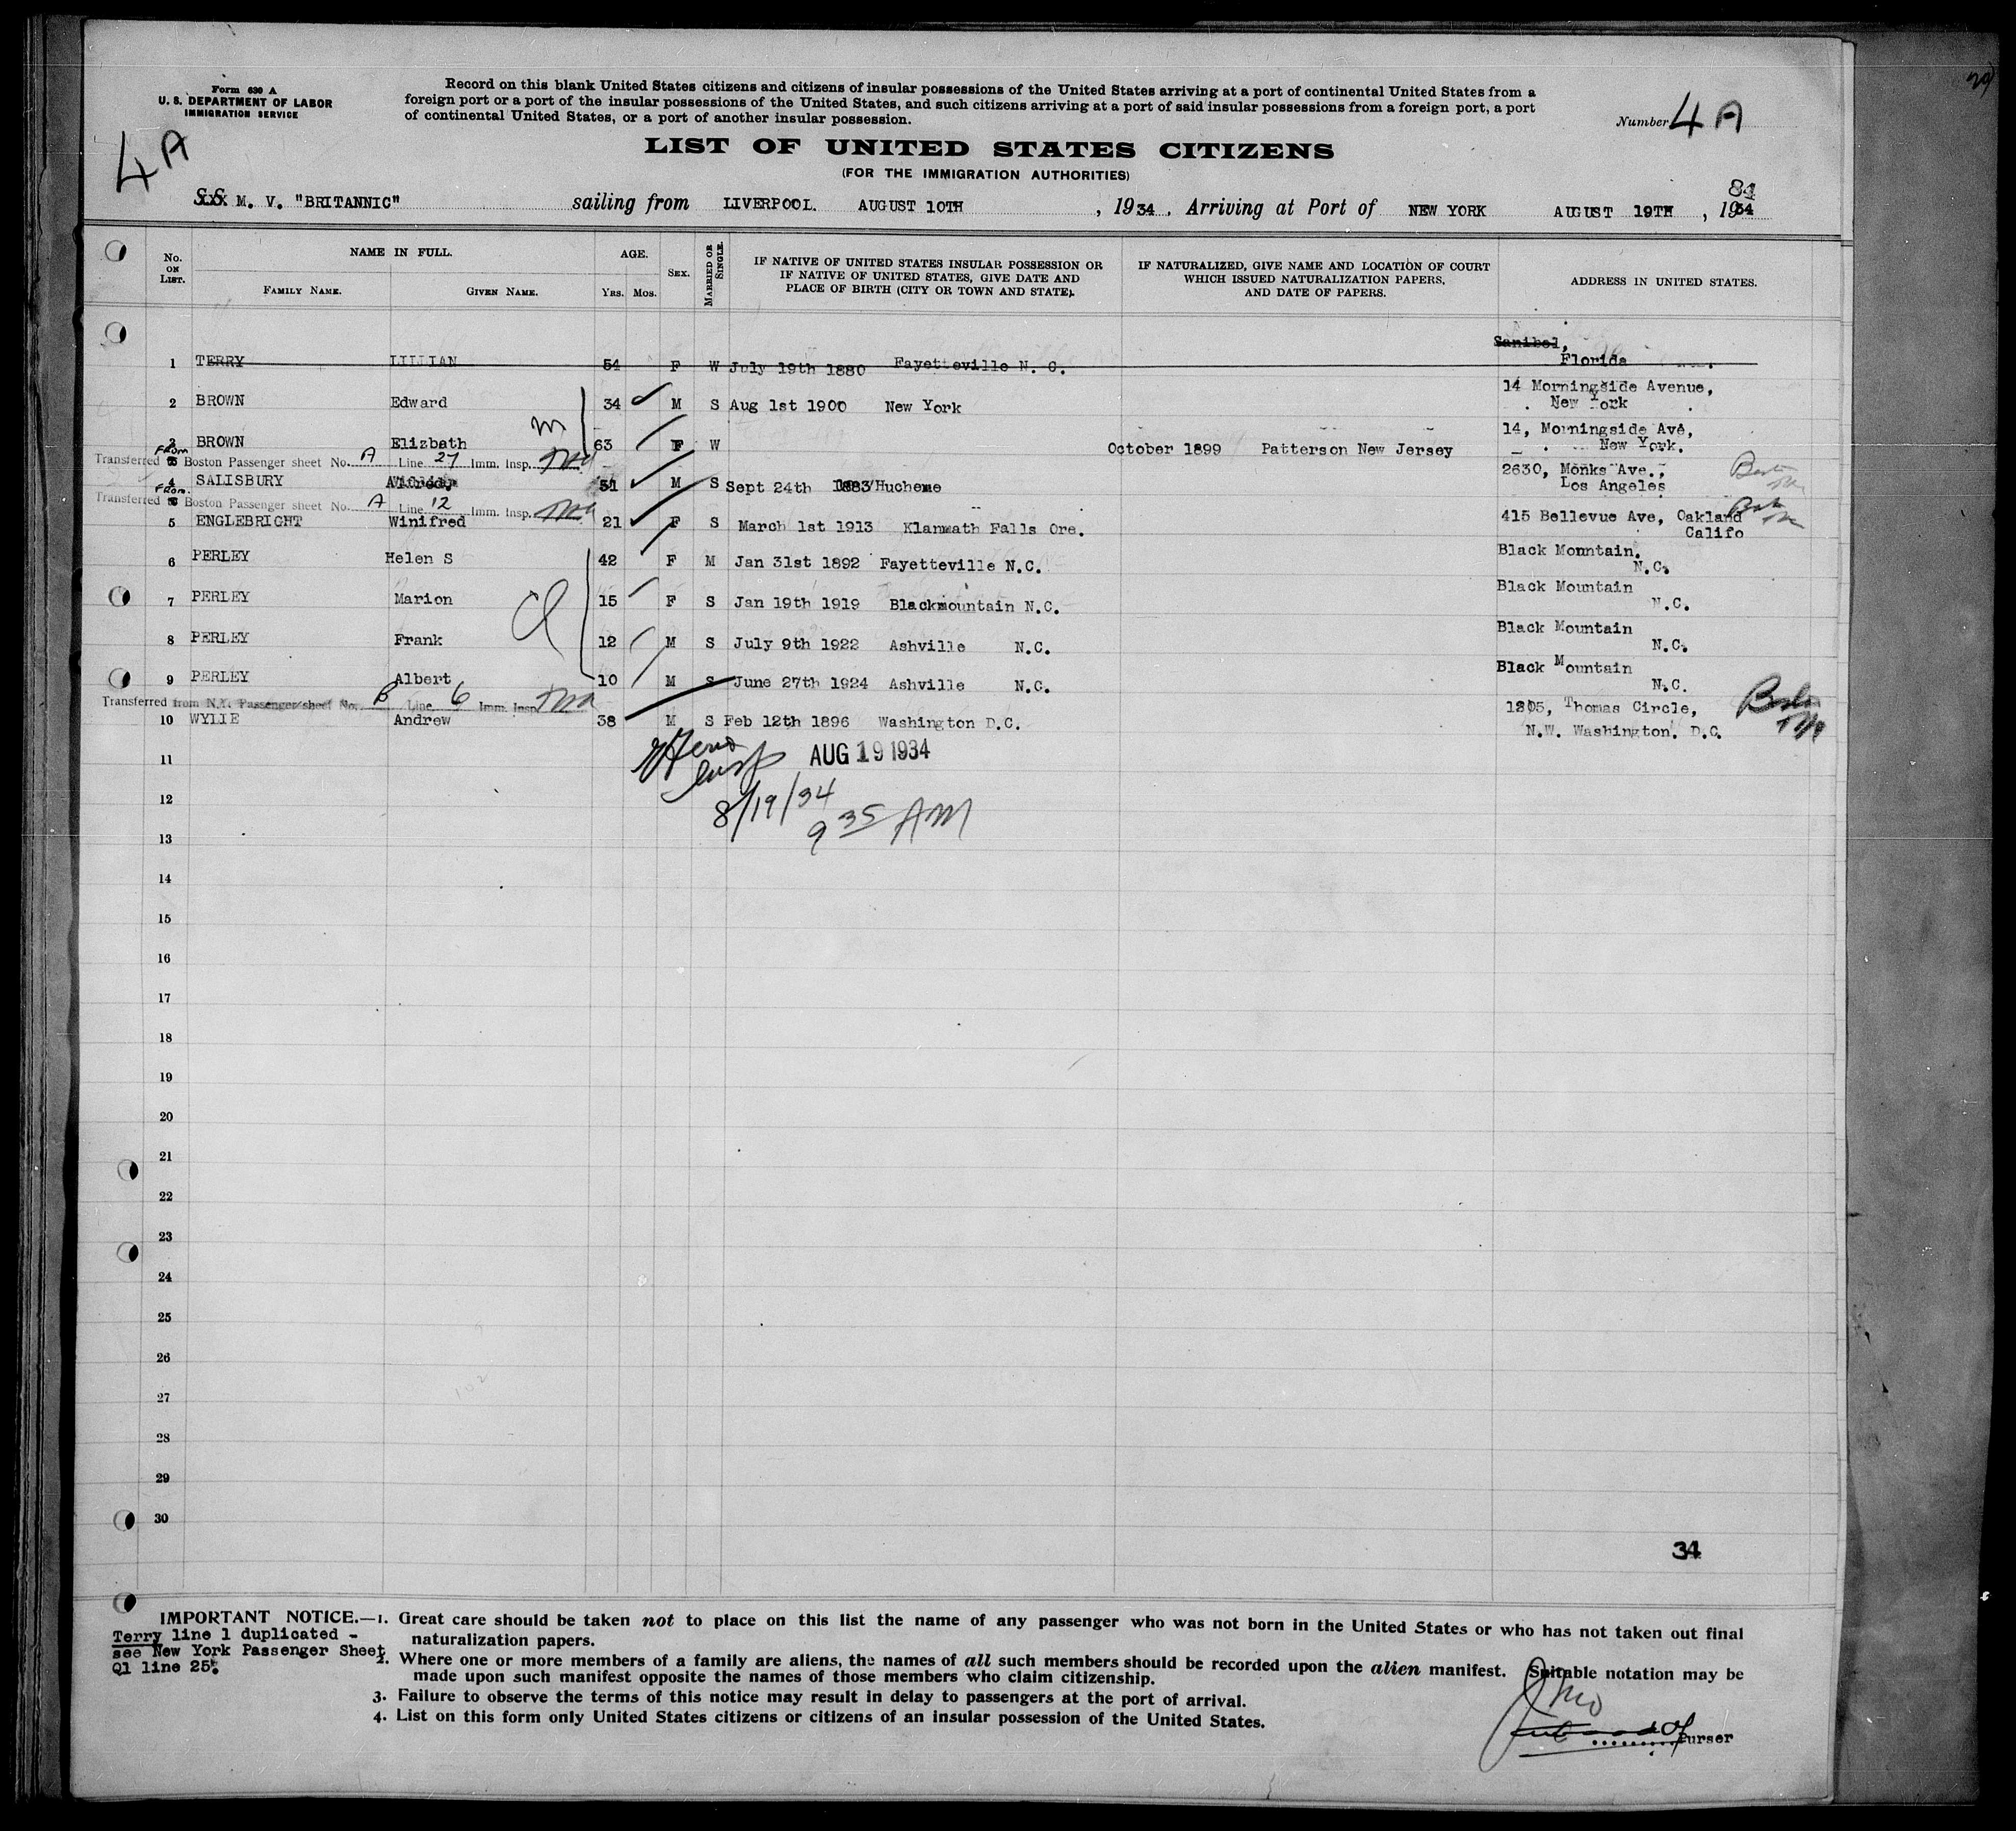 Form 630 A
U. S. DEPARTMENT OF LABOR
IMMIGRATION SERVICE
4 A
Record on this blank United States citizens and citizens of insular possessions of the United States arriving at a port of continental United States from a
foreign port or a port of the insular possessions of the United States, and such citizens arriving at a port of said insular possessions from a foreign port, a port
of continental United States, or a port of another insular possession.
Number 4 A
LIST OF UNITED STATES CITIZENS
(FOR THE IMMIGRATION AUTHORITIES)
S.S. M. V. "BRITANNIC" sailing from LIVERPOOL. AUGUST 10TH , 1934, Arriving at Port of NEW YORK AUGUST 19TH , 1934
84
No. ON LIST. NAME IN FULL. AGE. SEX. MARRIED OR SINGLE. IF NATIVE OF UNITED STATES INSULAR POSSESSION OR IF NATIVE OF UNITED STATES, GIVE DATE AND PLACE OF BIRTH (CITY OR TOWN AND STATE). IF NATURALIZED, GIVE NAME AND LOCATION OF COURT WHICH ISSUED NATURALIZATION PAPERS, AND DATE OF PAPERS. ADDRESS IN UNITED STATES.
FAMILY NAME. GIVEN NAME. Yrs. Mos.
1 TERRY LILLIAN 54 F W July 19th 1880 Fayetteville N. C. Sanibel, Florida
2 BROWN Edward 34 M S Aug 1st 1900 New York 14 Morningside Avenue, New York
m
3 BROWN Elizbath 63 F W October 1899 Patterson New Jersey 14, Morningside Ave, New York.
Transferred From Boston Passenger sheet No. A Line 27 Imm. Insp.
4 SALISBURY Alfred, 51 M S Sept 24th 1883 Hucheme 2630, Monks Ave., Los Angeles
Transferred From Boston Passenger sheet No. A Line 12 Imm. Insp.
5 ENGLEBRIGHT Winifred 21 F S March 1st 1913 Klanmath Falls Ore. 415 Bellevue Ave, Oakland Califo
6 PERLEY Helen S 42 F M Jan 31st 1892 Fayetteville N.C. Black Monntain. N.C.
7 PERLEY Marion 15 F S Jan 19th 1919 Blackmountain N.C. Black Mountain N.C.
8 PERLEY Frank 12 M S July 9th 1922 Ashville N.C. Black Mountain N.C.
9 PERLEY Albert 10 M S June 27th 1924 Ashville N.C. Black Mountain N.C.
Transferred from N.Y. Passenger sheet No. B Line 6 Imm. Insp.
10 WYLIE Andrew 38 M S Feb 12th 1896 Washington D.C. Thomas Circle, N.W. Washington. D.C.
11
AUG 19 1934
12
8/19/34
9 35 AM
13
14
15
16
17
18
19
20
21
22
23
24
25
26
27
28
29
30
34
IMPORTANT NOTICE.—1. Great care should be taken not to place on this list the name of any passenger who was not born in the United States or who has not taken out final
naturalization papers.
Terry line 1 duplicated -
see New York Passenger Sheet
Q1 line 25.
2. Where one or more members of a family are aliens, the names of all such members should be recorded upon the alien manifest. Suitable notation may be
made upon such manifest opposite the names of those members who claim citizenship.
3. Failure to observe the terms of this notice may result in delay to passengers at the port of arrival.
4. List on this form only United States citizens or citizens of an insular possession of the United States.
Purser